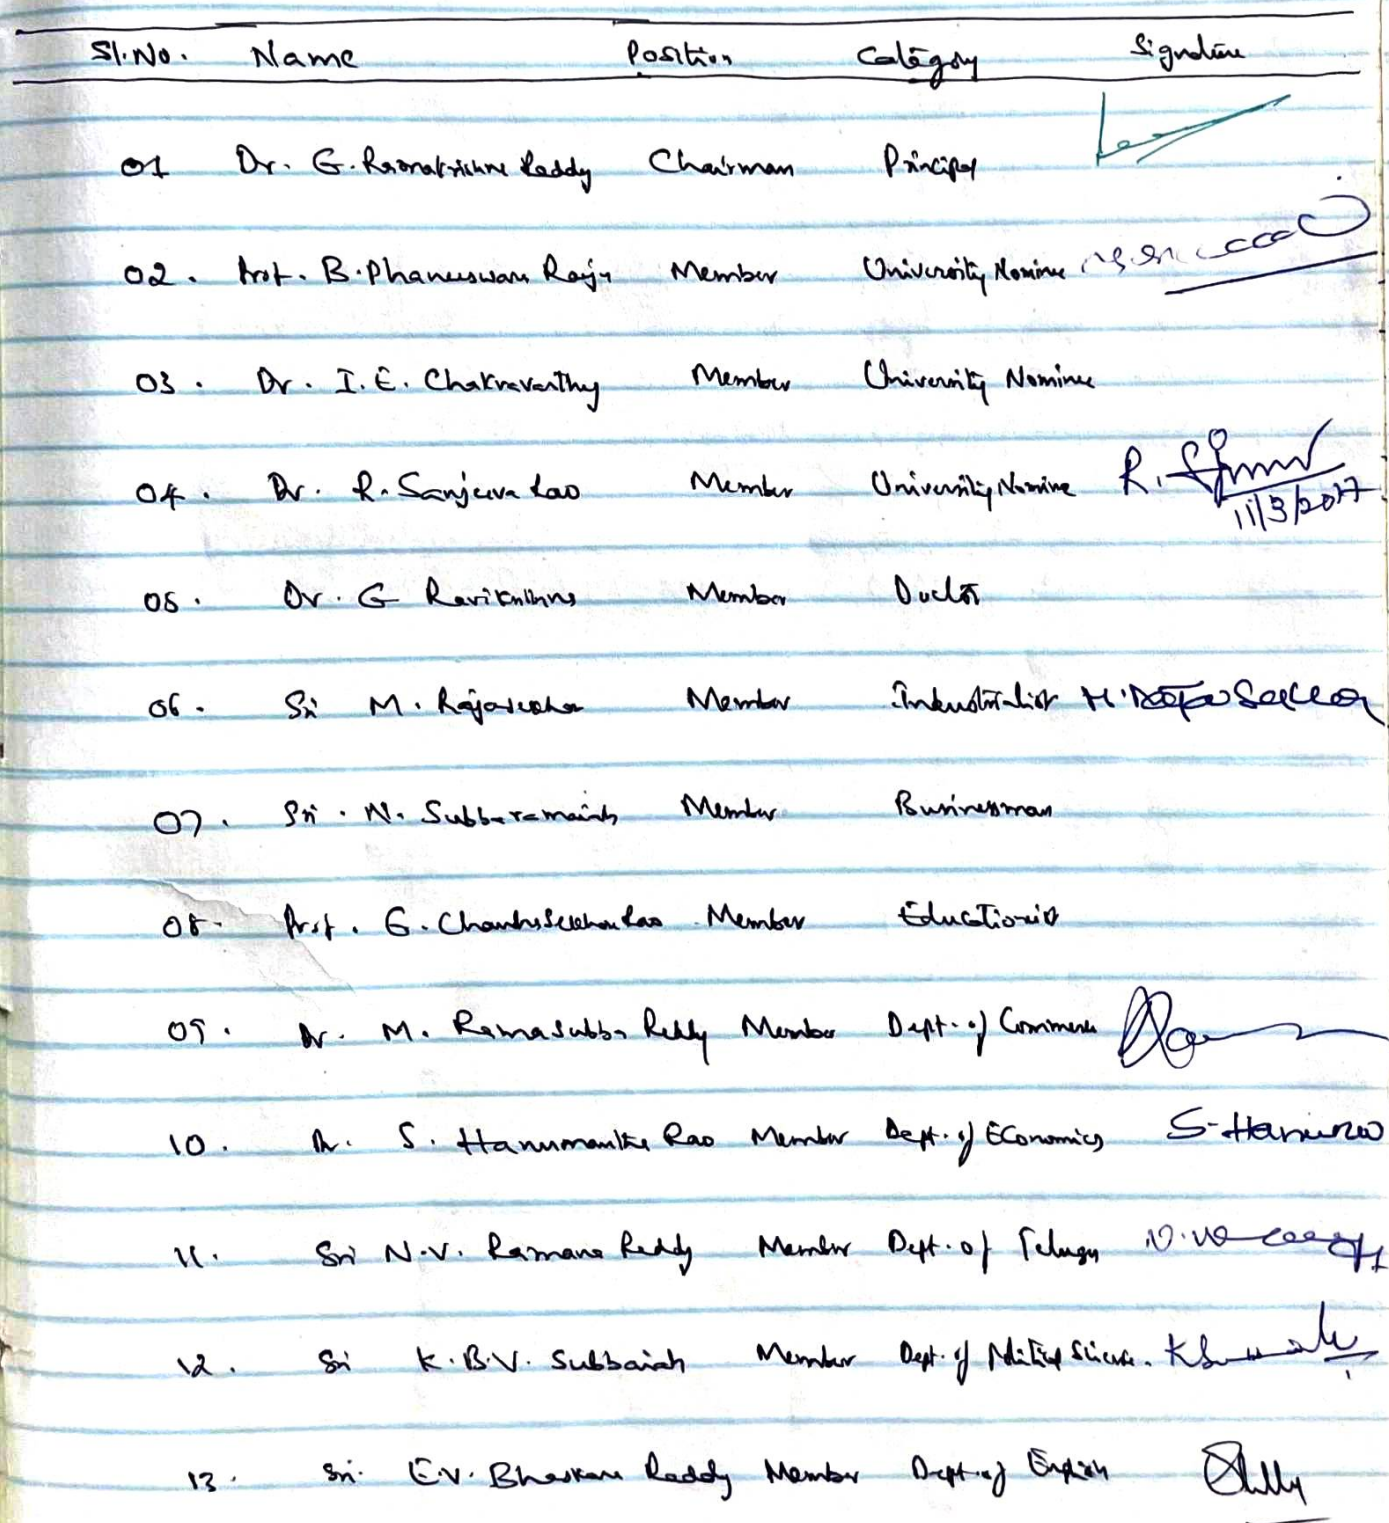 Sl.No. Name Position Category Signature
01 Dr. G. Ramakrishna Reddy Chairman Principal
02. Prof. B. Phaneeswara Raju Member University Nominee
03. Dr. I. E. Chakravarthy Member University Nominee
04. Dr. R. Sanjeeva Rao Member University Nominee R. 11/3/2017
05. Dr. G Ravikrishna Member Doctor
06. Sri M. Rajasekhar Member Industrialist M. Raja Sekhar
07. Sri. N. Subbaramaiah Member Businessman
08. Prof. G. Chandrasekhara Rao Member Educationist
09. Dr. M. Ramasubba Reddy Member Dept. of Commerce
10. Dr. S. Hanumantha Rao Member Dept. of Economics S. Hanurao
11. Sri N.V. Ramana Reddy Member Dept. of Telugu
12. Sri K.B.V. Subbaiah Member Dept. of Political Science.
13. Sri. E.V. Bhaskara Reddy Member Dept. of English